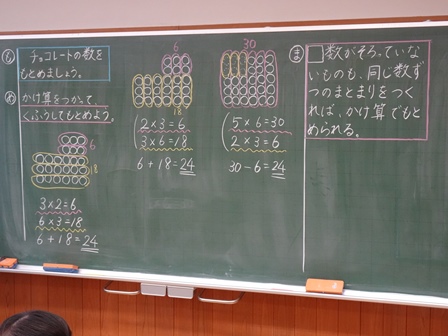 も
チョコレートの数を
もとめましょう。
め
かけ算をつかって、
くふうしてもとめよう。
6
18
3×2=6
6×3=18
6+18=24
6
18
2×3=6
3×6=18
6+18=24
30
5×6=30
2×3=6
30-6=24
ま
□数がそろっていな
いものも、同じ数ず
つのまとまりをつく
れば、かけ算でもと
められる。